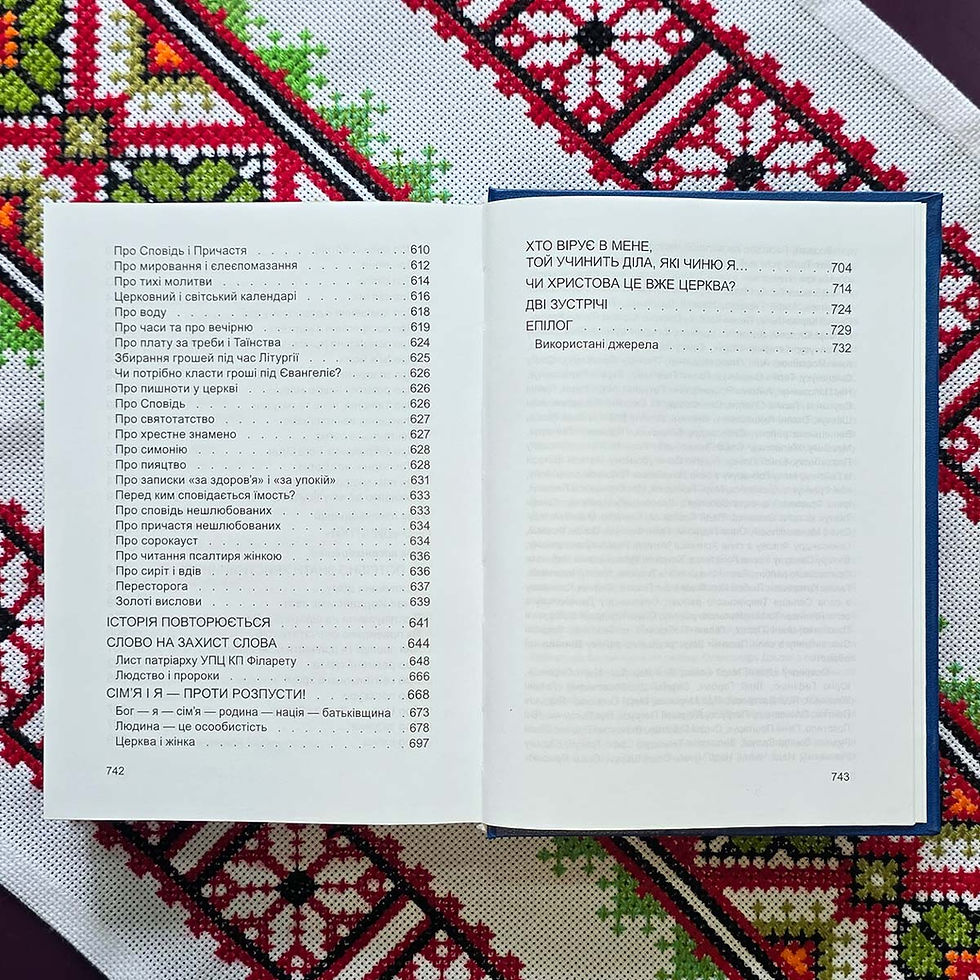 Про Сповідь і Причастя . . . . . . . . . . . . 610
Про мировання і єлеєпомазання . . . . . . . . 612
Про тихі молитви . . . . . . . . . . . . . . 614
Церковний і світський календарі . . . . . . . . 616
Про воду . . . . . . . . . . . . . . . . . 618
Про часи та про вечірню . . . . . . . . . . . 619
Про плату за треби і Таїнства . . . . . . . . . 624
Збирання грошей під час Літургії . . . . . . . . 625
Чи потрібно класти гроші під Євангеліє? . . . . . 626
Про пишноти у церкві . . . . . . . . . . . . 626
Про Сповідь . . . . . . . . . . . . . . . . 626
Про святотатство . . . . . . . . . . . . . . 627
Про хрестне знамено . . . . . . . . . . . . 627
Про симонію . . . . . . . . . . . . . . . . 628
Про пияцтво . . . . . . . . . . . . . . . . 628
Про записки «за здоров'я» і «за упокій» . . . . . 631
Перед ким сповідається їмость? . . . . . . . . 633
Про сповідь нешлюбованих . . . . . . . . . . 633
Про причастя нешлюбованих . . . . . . . . . 634
Про сорокауст . . . . . . . . . . . . . . . 634
Про читання псалтиря жінкою . . . . . . . . . 636
Про сиріт і вдів . . . . . . . . . . . . . . . 636
Пересторога . . . . . . . . . . . . . . . . 637
Золоті вислови . . . . . . . . . . . . . . . 639
ІСТОРІЯ ПОВТОРЮЄТЬСЯ . . . . . . . . . . 641
СЛОВО НА ЗАХИСТ СЛОВА . . . . . . . . . . 644
Лист патріарху УПЦ КП Філарету . . . . . . . . 648
Людство і пророки . . . . . . . . . . . . . . 666
СІМ'Я І Я — ПРОТИ РОЗПУСТИ! . . . . . . . . 668
Бог — я — сім'я — родина — нація — батьківщина . 673
Людина — це осообистість . . . . . . . . . . 678
Церква і жінка . . . . . . . . . . . . . . . 697
742
ХТО ВІРУЄ В МЕНЕ,
ТОЙ УЧИНИТЬ ДІЛА, ЯКІ ЧИНЮ Я... . . . . . . . 704
ЧИ ХРИСТОВА ЦЕ ВЖЕ ЦЕРКВА? . . . . . . . 714
ДВІ ЗУСТРІЧІ . . . . . . . . . . . . . . . . 724
ЕПІЛОГ . . . . . . . . . . . . . . . . . . 729
Використані джерела . . . . . . . . . . . . 732
743